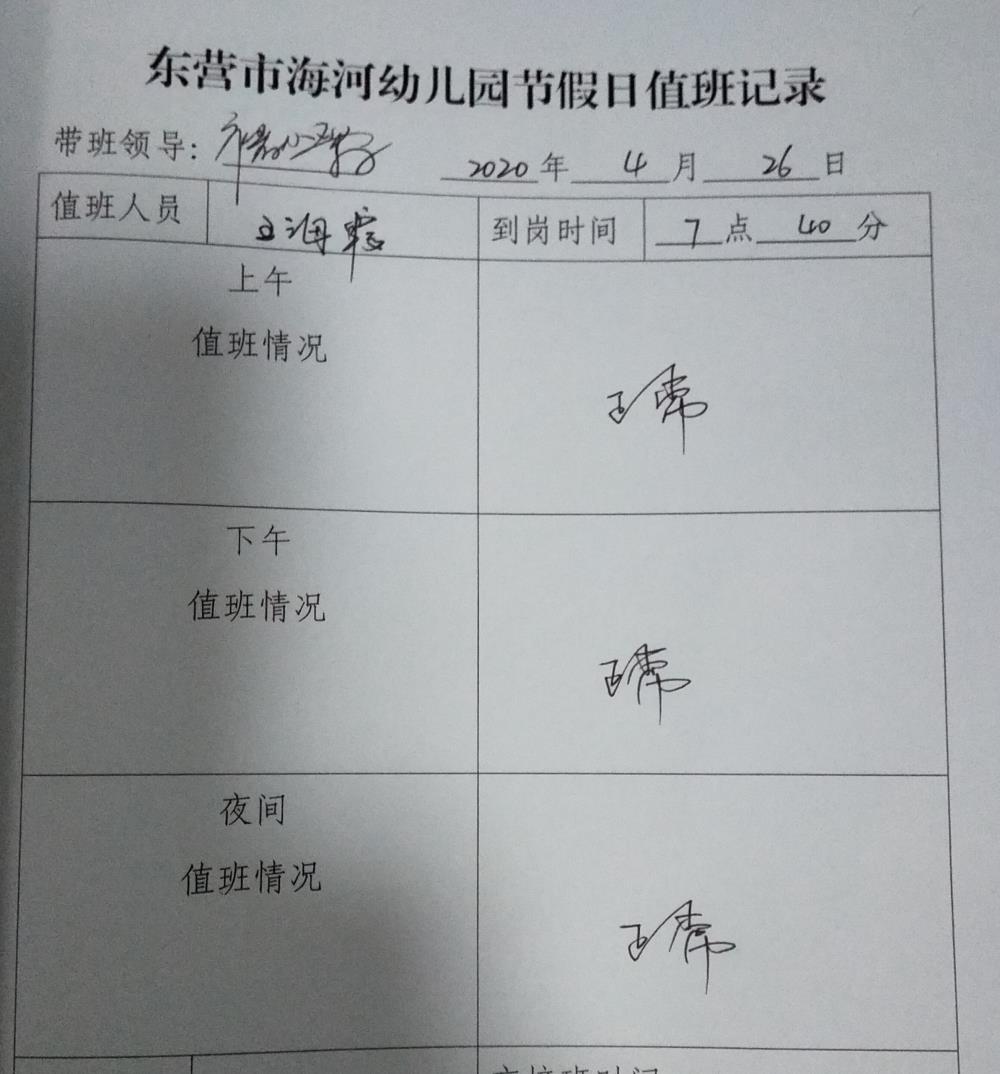 东营市海河幼儿园节假日值班记录
带班领导: 2020年 4月 26日
值班人员 王海霞 到岗时间 7点 40分
上午
值班情况
正常
下午
值班情况
正常
夜间
值班情况
正常